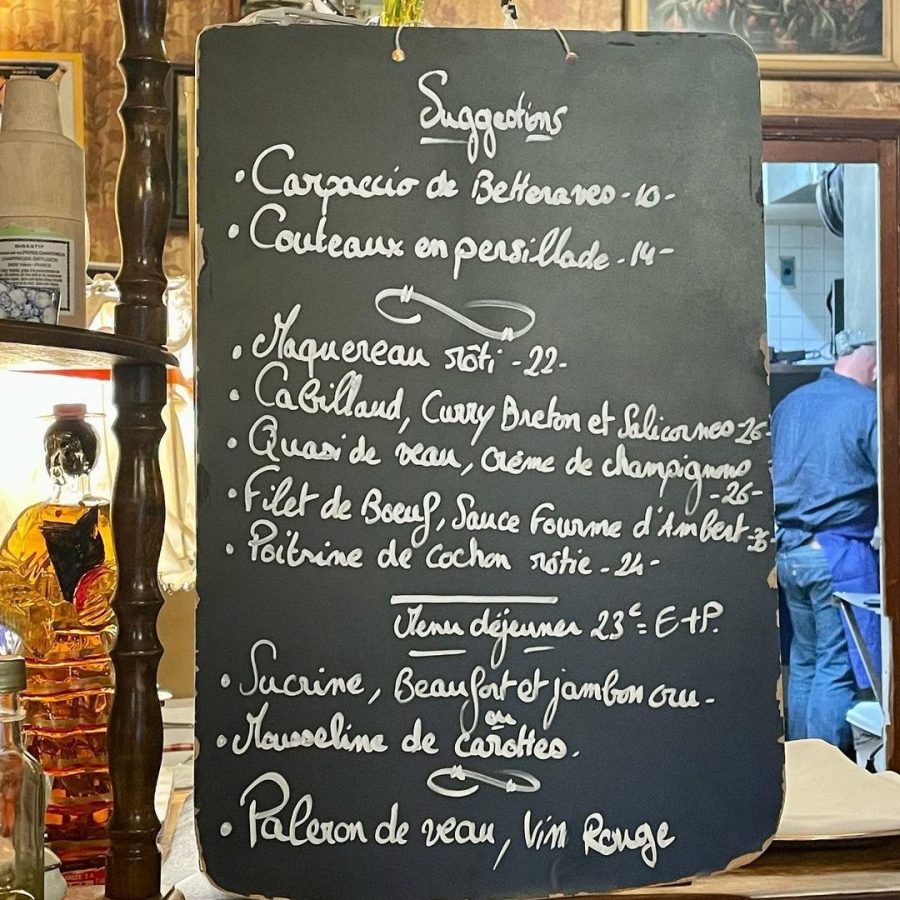 Suggestions
• Carpaccio de Betteraves - 10 -
• Couteaux en persillade - 14 -
• Maquereau rôti - 22 -
• Cabillaud, Curry Breton et Salicornes 26 -
• Quasi de veau, crème de champignons
- 26 -
• Filet de Boeuf, Sauce Fourme d'Ambert -
• Poitrine de cochon rôtie - 24 -
Menu déjeuner 23€ = E+P.
• Sucrine, Beaufort et jambon cru -
ou
• Mousseline de carottes.
• Paleron de veau, Vin Rouge
DIGESTIF